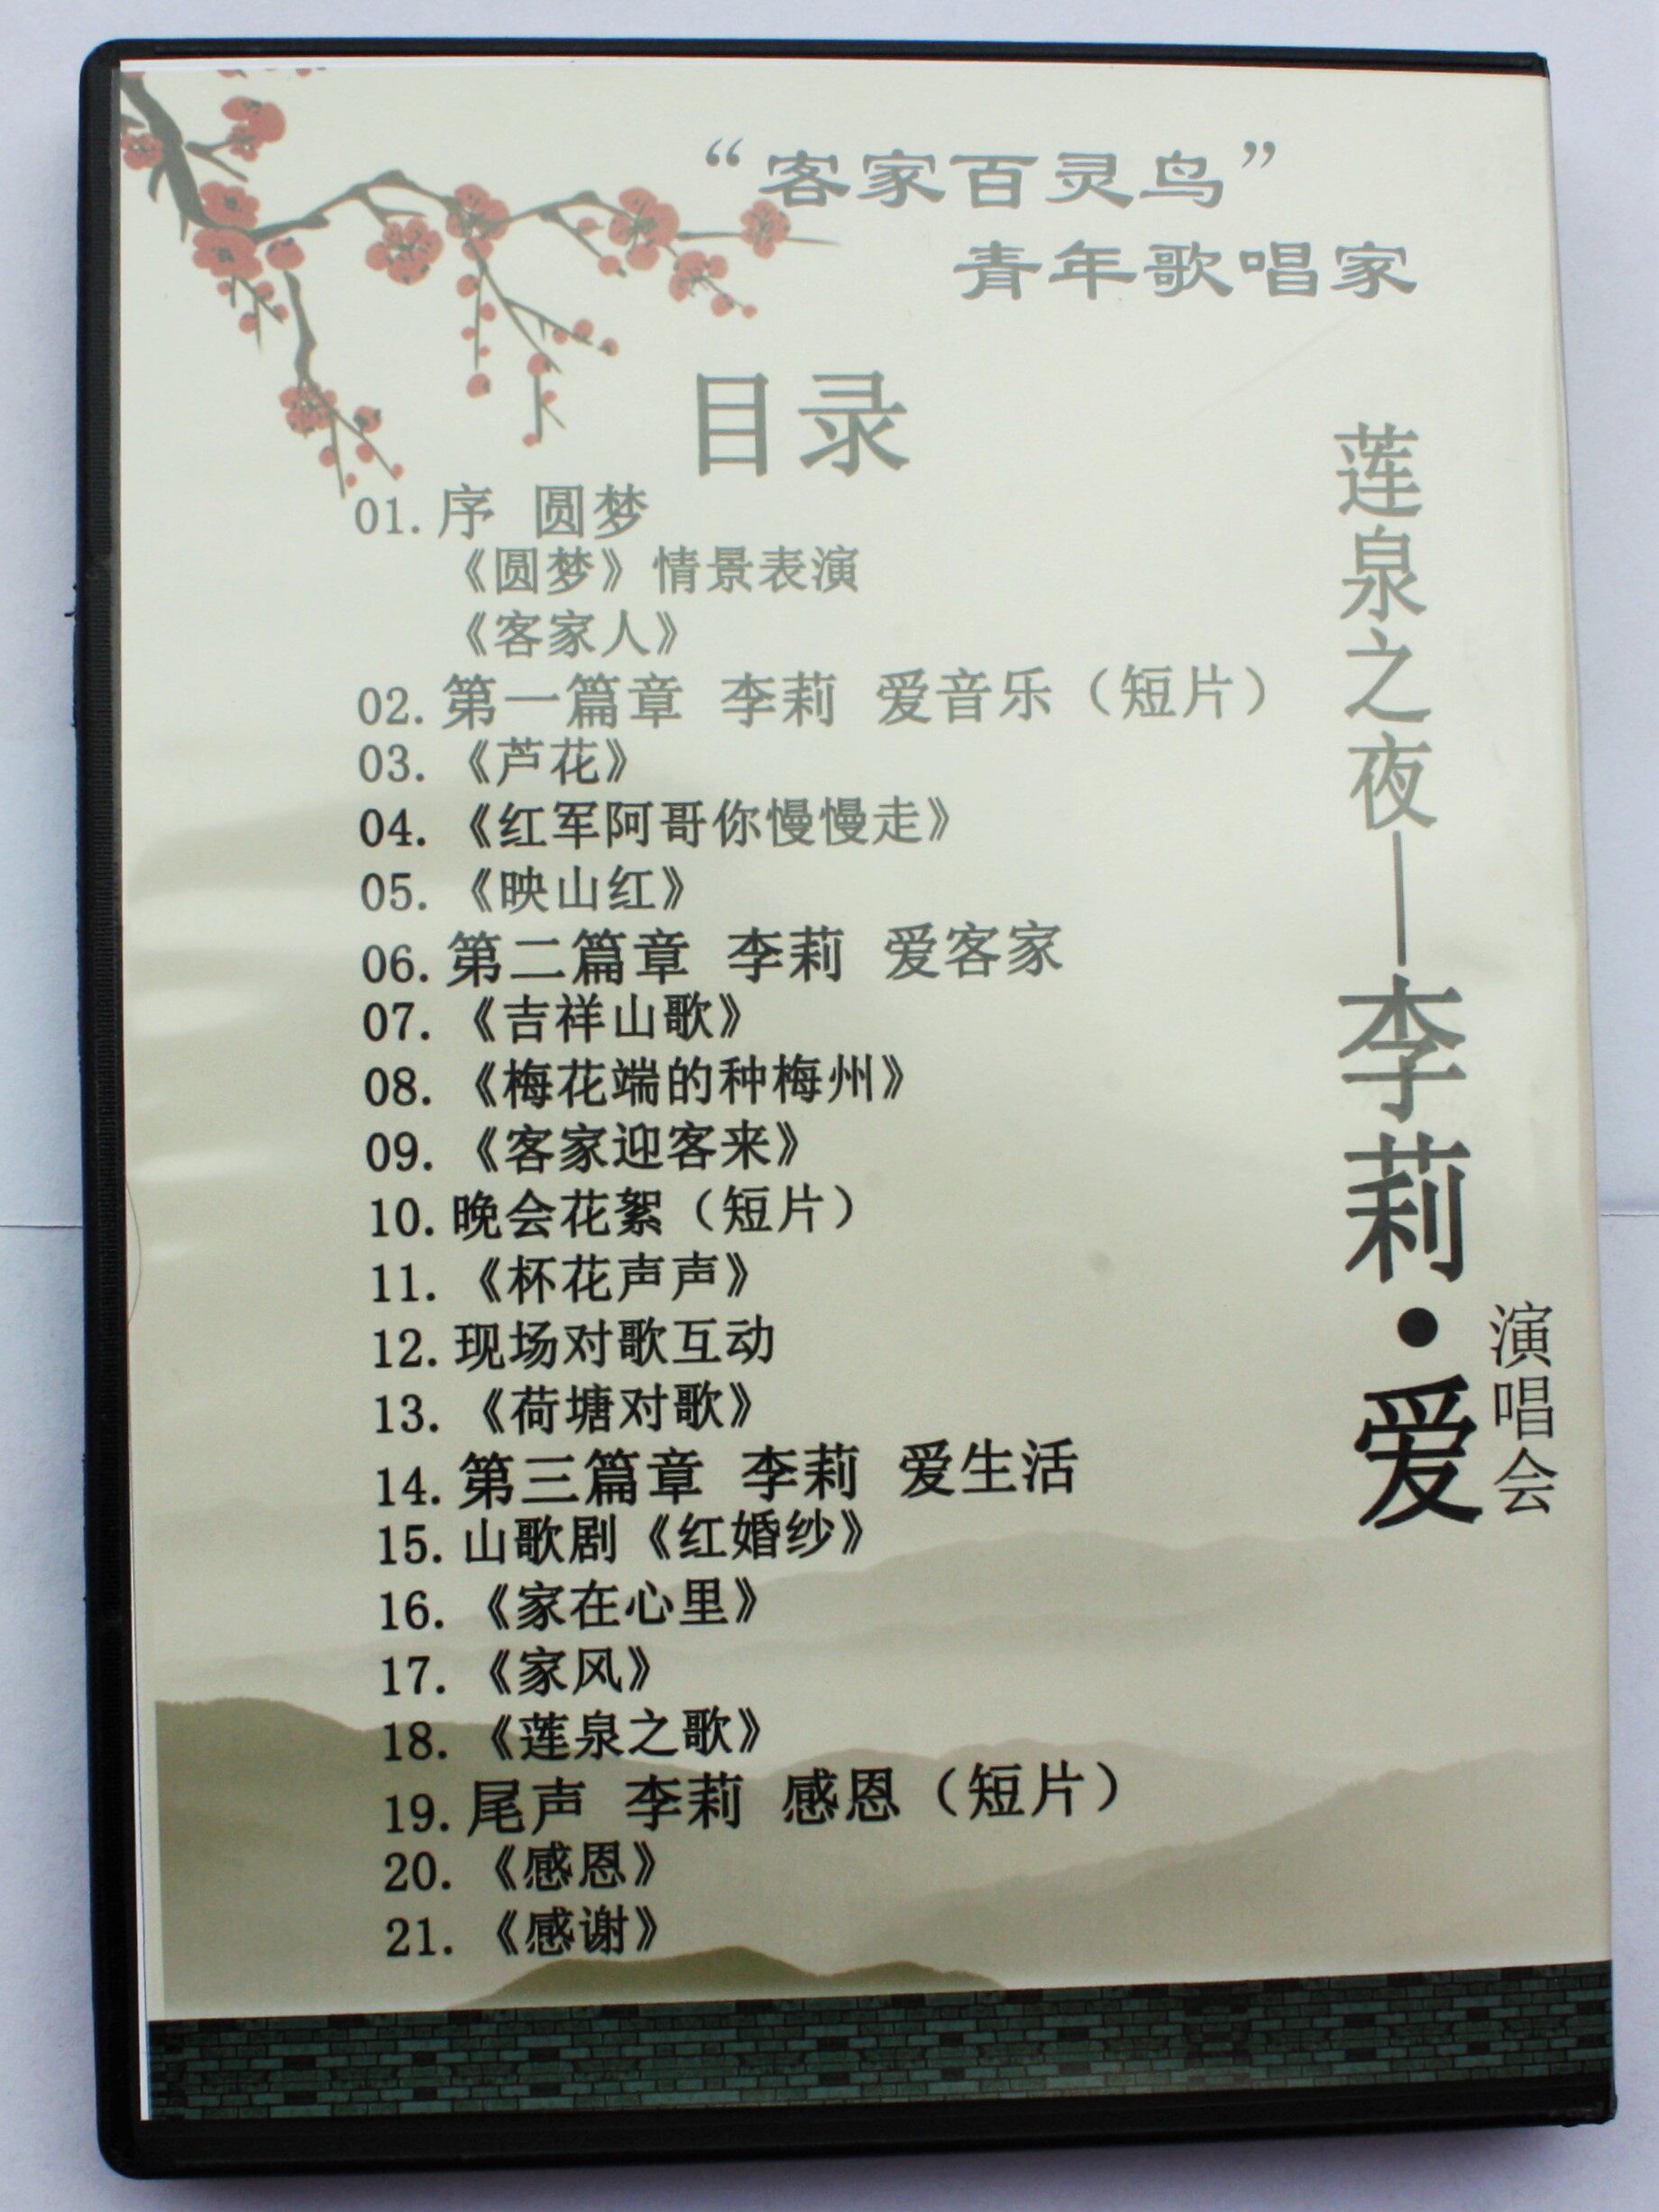 “客家百灵鸟”
青年歌唱家
目录
01.序 圆梦
《圆梦》情景表演
《客家人》
02.第一篇章 李莉 爱音乐（短片）
03.《芦花》
04.《红军阿哥你慢慢走》
05.《映山红》
06.第二篇章 李莉 爱客家
07.《吉祥山歌》
08.《梅花端的种梅州》
09.《客家迎客来》
10.晚会花絮（短片）
11.《杯花声声》
12.现场对歌互动
13.《荷塘对歌》
14.第三篇章 李莉 爱生活
15.山歌剧《红婚纱》
16.《家在心里》
17.《家风》
18.《莲泉之歌》
19.尾声 李莉 感恩（短片）
20.《感恩》
21.《感谢》
莲泉之夜—李莉·爱
演唱会